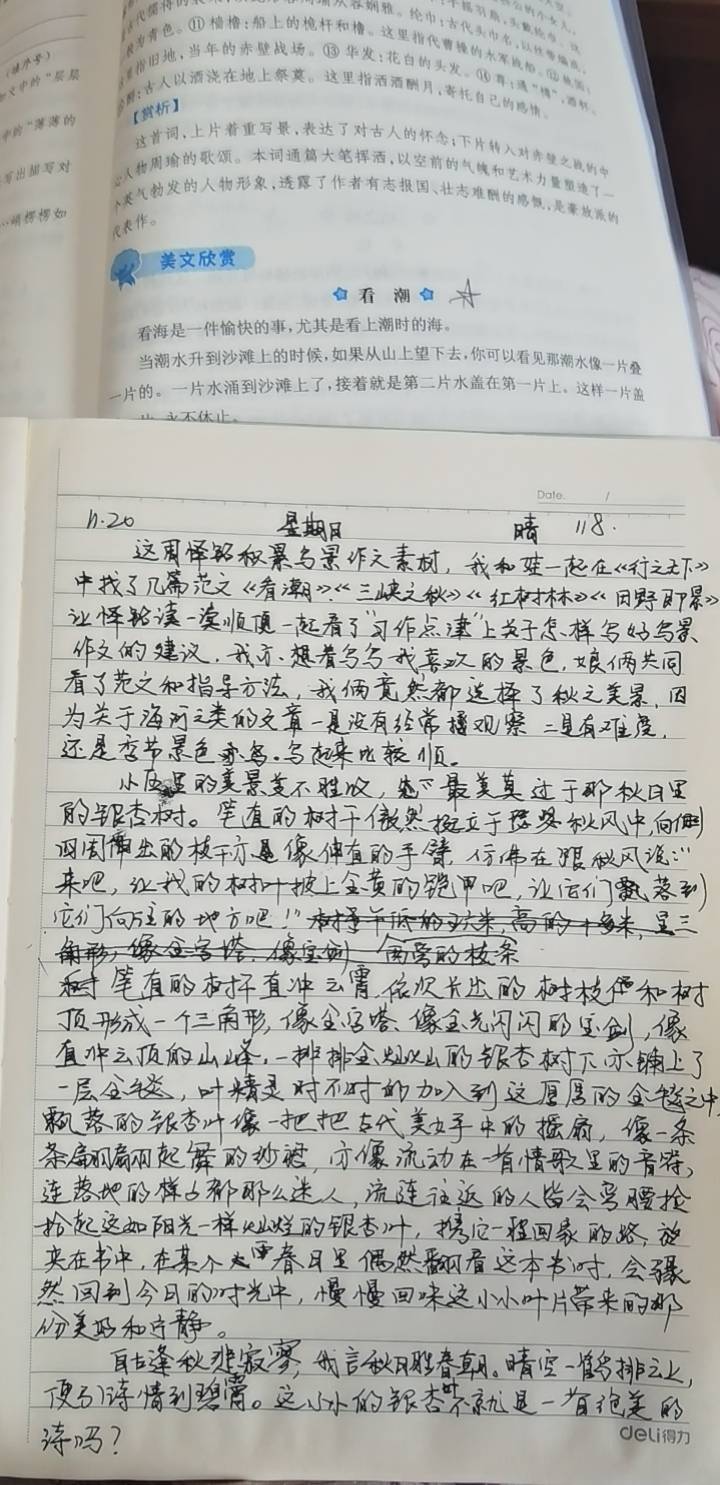 （填序号）
文中的“层层
中的“薄薄的
写出描写对
……崩楞楞如
青色。⑪樯橹：船上的桅杆和橹。这里指代曹操的水军战船。
指旧地，当年的赤壁战场。⑬华发：花白的头发。⑭尊：通“樽”，酒杯。
酹：古人以酒浇在地上祭奠。这里指洒酒酬月，寄托自己的感情。
【赏析】
这首词，上片着重写景，表达了对古人的怀念；下片转入对赤壁之战的中
心人物周瑜的歌颂。本词通篇大笔挥洒，以空前的气魄和艺术力量塑造了一
个英气勃发的人物形象，透露了作者有志报国、壮志难酬的感慨，是豪放派的
代表作。
美文欣赏
看 潮
看海是一件愉快的事，尤其是看上潮时的海。
当潮水升到沙滩上的时候，如果从山上望下去，你可以看见那潮水像一片叠
一片的。一片水涌到沙滩上了，接着就是第二片水盖在第一片上。这样一片盖
一片，永不休止。
Date. /
11.20 星期日 晴 118.
这周怿铭积累写景作文素材，我和娃一起在《行之天下》
中找了几篇范文《看潮》《三峡之秋》《红树林》《田野即景》
让怿铭读一读顺便一起看了“习作点津”上关于怎样写好写景
作文的建议，我亦想着写写我喜欢的景色，娘俩共同
看了范文和指导方法，我俩竟然都选择了秋之美景，因
为关于海河之类的文章一是没有经常撞观察 二是有难度，
还是季节景色亦写。写起来比较顺。
小区里的美景美不胜收， 最美莫过于那秋日里
的银杏树。笔直的树干傲然挺立于瑟瑟秋风中，向侧
四周伸出的枝干亦是像伸直的手臂，仿佛在跟秋风说：“
来吧，让我的树叶披上金黄的铠甲吧，让它们飘落到
它们向往的地方吧！”
角形，像金字塔，像宝剑 的枝条
笔直的树干直冲云霄，依次长出的树枝伸和树
顶形成一个三角形，像金字塔、像金光闪闪的宝剑，像
直冲云顶的山峰，一排排金灿灿的银杏树下亦铺上了
一层金毯，叶精灵时不时的加入到这厚厚的金毯之中，
飘落的银杏叶像一把把古代美女手中的摇扇，像一条
条扇翩翩起舞的纱裙，亦像流动在一首情歌里的音符，
连落地的样子都那么迷人，流连往返的人皆会弯腰捡
拾起这如阳光一样灿烂的银杏叶，携它一程回家的路，放
夹在书中，在某个 春日里偶然翻看这本书时，会骤
然回到今日的时光中，慢慢回味这小小叶片带来的那
份美好和宁静。
自古逢秋悲寂寥，我言秋日胜春朝。晴空一鹤排云上，
便引诗情到碧霄。这小小的银杏叶不就是一首绝美的
诗吗？
deli得力